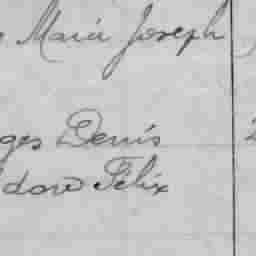 Maria Joseph
ges Denis
dore Félix